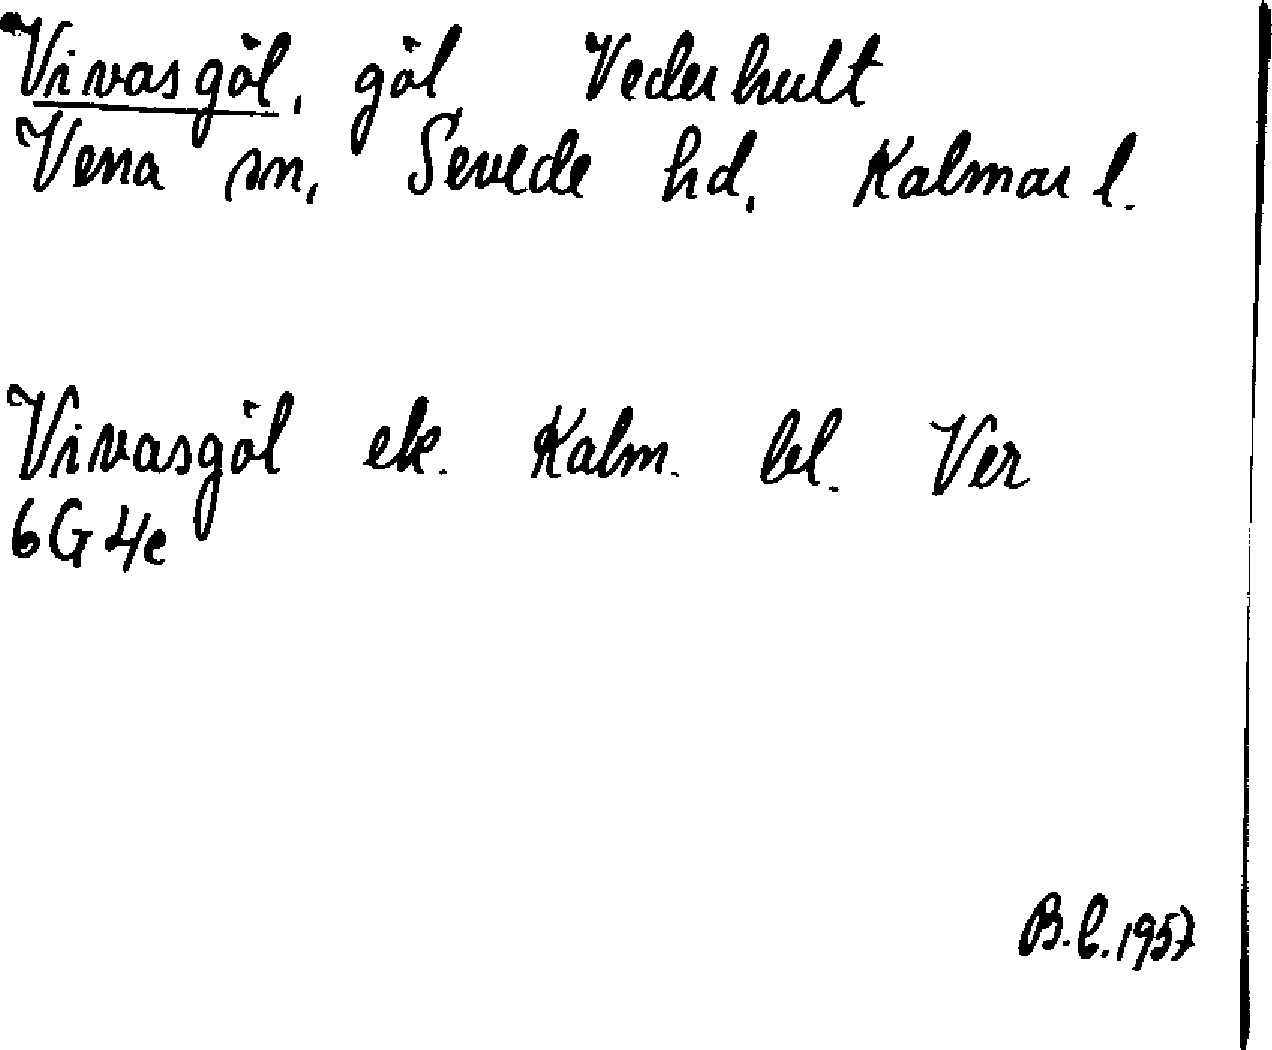 Vivasgöl, göl Vederhult
Vena sn, Sevede hd, Kalmar l.
Vivasgöl ek. Kalm. bl. Ver
6G 4e
B.C. 1957